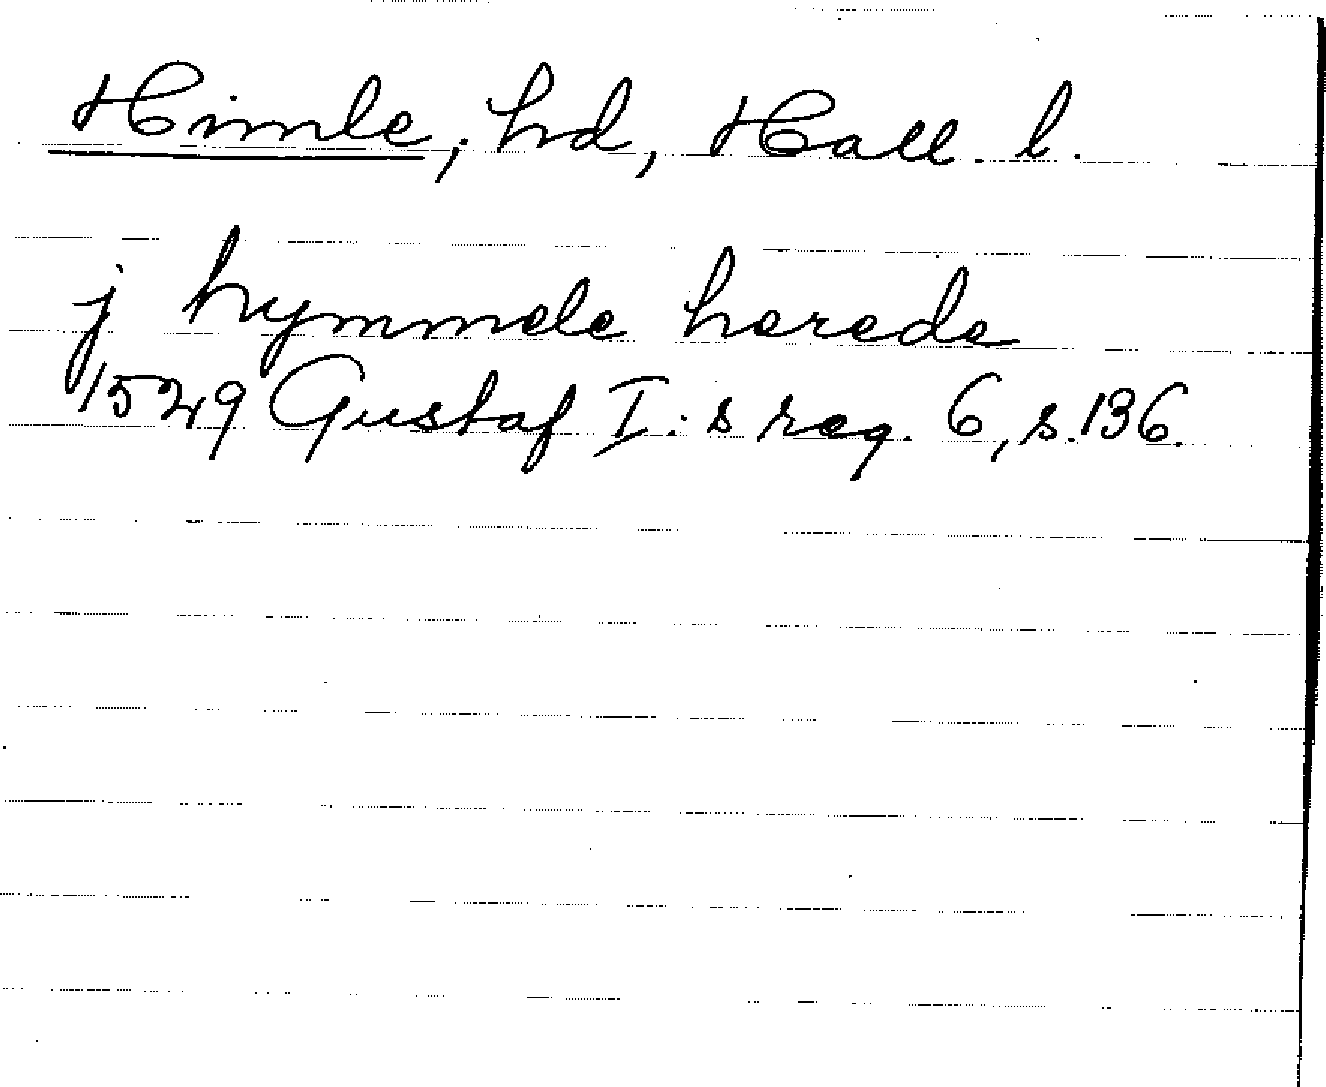 Himle, hd, Hall. l.
j hymmele herede
1529 Gustaf I:s reg. 6, s.136.